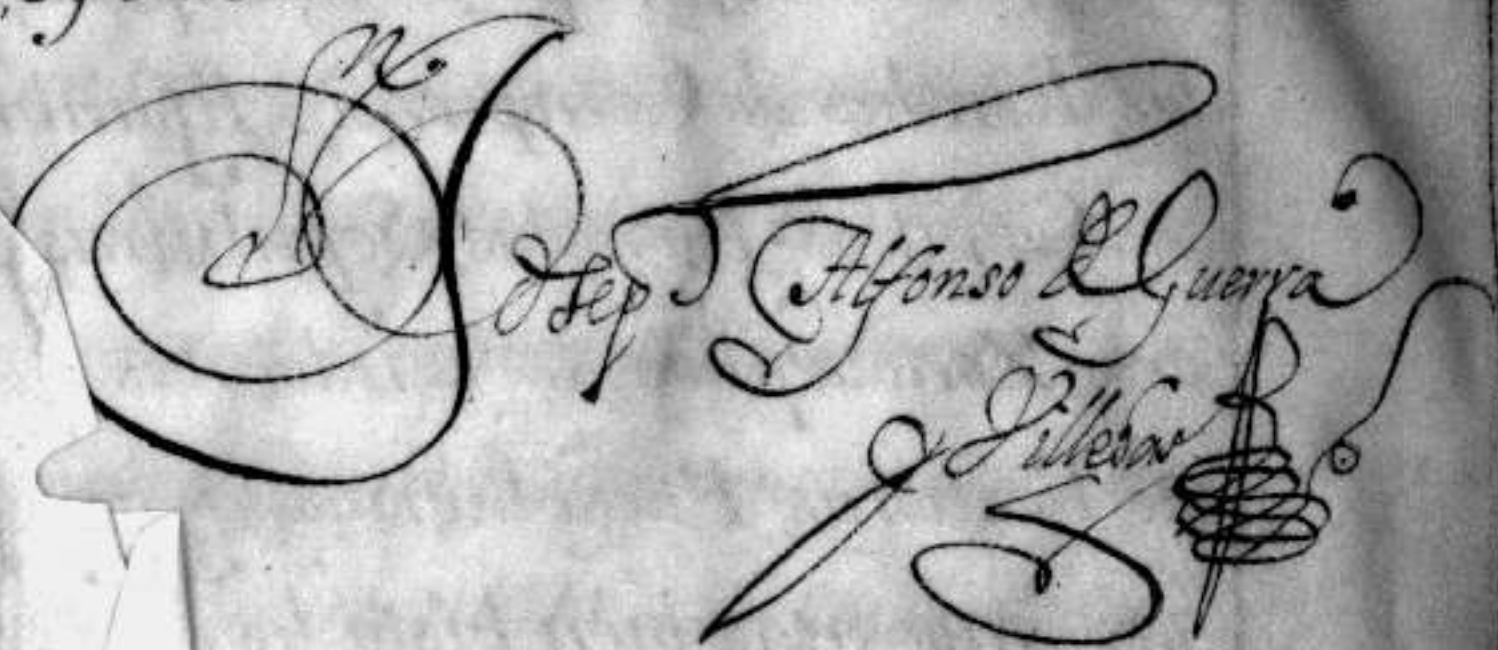 Joseph Alfonso de Guerra
y Villegas